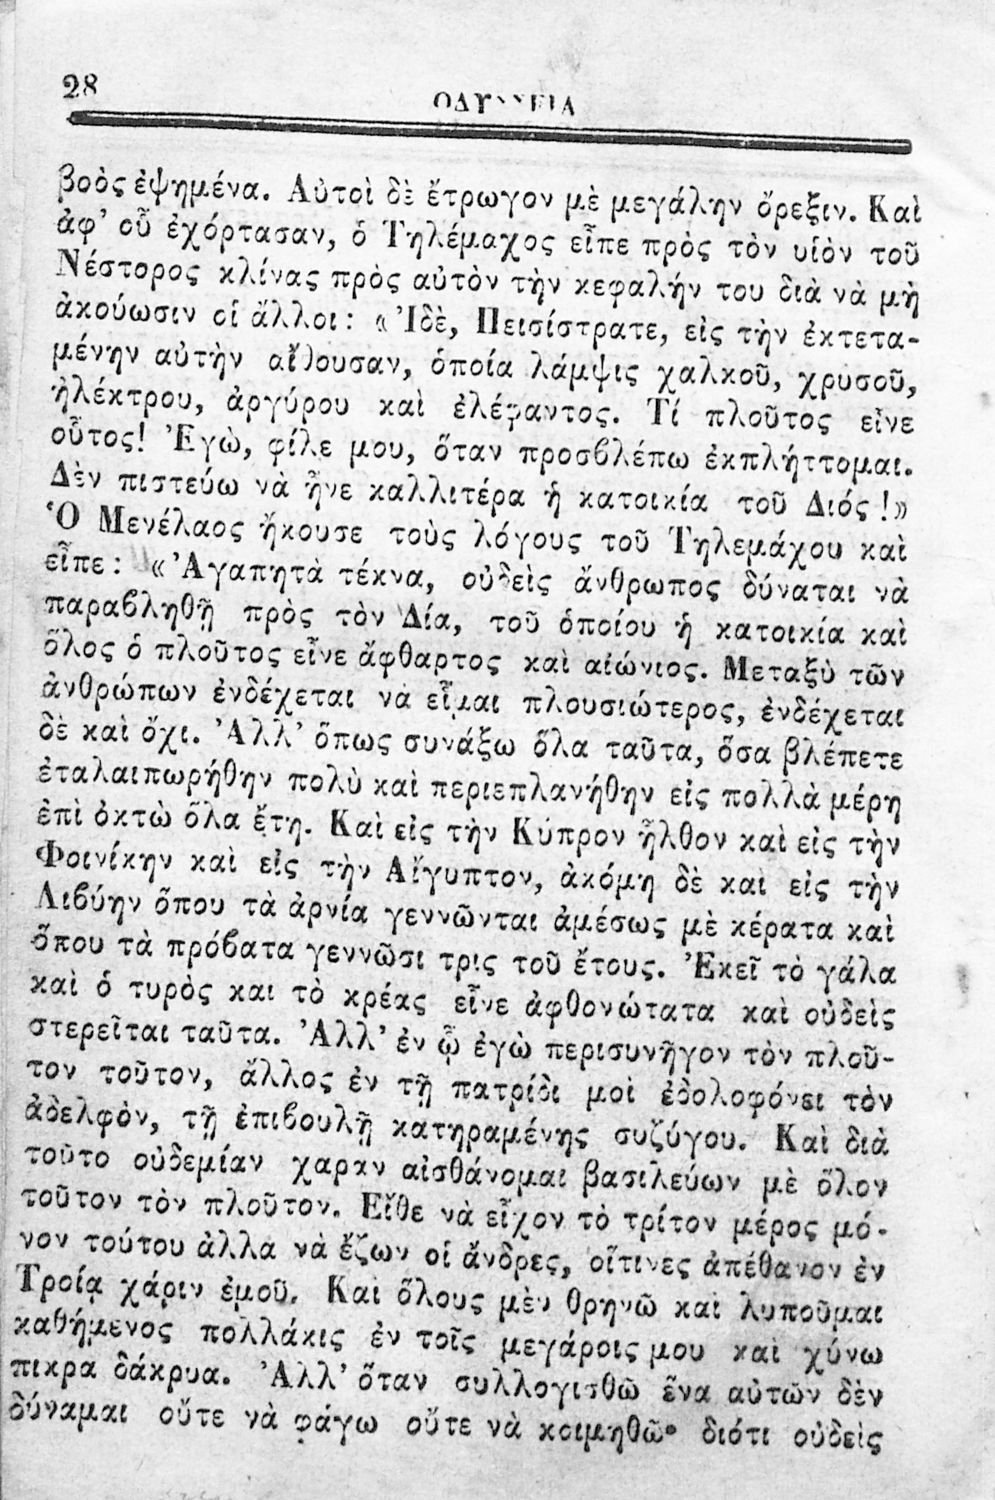 28
ΟΔΥΣΣΕΙΑ
βοὸς ἐψημένα. Αὐτοὶ δὲ ἔτρωγον μὲ μεγάλην ὄρεξιν. Καὶ
ἀφ’ οὗ ἐχόρτασαν, ὁ Τηλέμαχος εἶπε πρὸς τὸν υἱὸν τοῦ
Νέστορος κλίνας πρὸς αὐτὸν τὴν κεφαλήν του διὰ νὰ μὴ
ἀκούωσιν οἱ ἄλλοι: «Ἰδὲ, Πεισίστρατε, εἰς τὴν ἐκτετα-
μένην αὐτὴν αἴθουσαν, ὁποία λάμψις χαλκοῦ, χρυσοῦ,
ἠλέκτρου, ἀργύρου καὶ ἐλέφαντος. Τί πλοῦτος εἶνε
οὗτος! Ἐγὼ, φίλε μου, ὅταν προσβλέπω ἐκπλήττομαι.
Δὲν πιστεύω νὰ ἦνε καλλιτέρα ἡ κατοικία τοῦ Διός!»
Ὁ Μενέλαος ἤκουσε τοὺς λόγους τοῦ Τηλεμάχου καὶ
εἶπε: «Ἀγαπητὰ τέκνα, οὐδεὶς ἄνθρωπος δύναται νὰ
παραβληθῇ πρὸς τὸν Δία, τοῦ ὁποίου ἡ κατοικία καὶ
ὅλος ὁ πλοῦτος εἶνε ἄφθαρτος καὶ αἰώνιος. Μεταξὺ τῶν
ἀνθρώπων ἐνδέχεται νὰ εἶμαι πλουσιώτερος, ἐνδέχεται
δὲ καὶ ὄχι. Ἀλλ’ ὅπως συνάξω ὅλα ταῦτα, ὅσα βλέπετε
ἐταλαιπωρήθην πολὺ καὶ περιεπλανήθην εἰς πολλὰ μέρη
ἐπὶ ὀκτὼ ὅλα ἔτη. Καὶ εἰς τὴν Κύπρον ἦλθον καὶ εἰς τὴν
Φοινίκην καὶ εἰς τὴν Αἴγυπτον, ἀκόμη δὲ καὶ εἰς τὴν
Λιβύην ὅπου τὰ ἀρνία γεννῶνται ἀμέσως μὲ κέρατα καὶ
ὅπου τὰ πρόβατα γεννῶσι τρις τοῦ ἔτους. Ἐκεῖ τὸ γάλα
καὶ ὁ τυρὸς και τὸ κρέας εἶνε ἀφθονώτατα καὶ οὐδεὶς
στερεῖται ταῦτα. Ἀλλ’ ἐν ᾧ ἐγὼ περισυνῆγον τὸν πλοῦ-
τον τοῦτον, ἄλλος ἐν τῇ πατρίδι μοὶ ἐδολοφόνει τὸν
ἀδελφὸν, τῇ ἐπιβουλῇ κατηραμένης συζύγου. Καὶ διὰ
τοῦτο οὐδεμίαν χαραν αἰσθάνομαι βασιλεύων μὲ ὅλον
τοῦτον τὸν πλοῦτον. Εἴθε νὰ εἶχον τὸ τρίτον μέρος μό-
νον τούτου ἀλλὰ νὰ ἔζων οἱ ἄνδρες, οἵτινες ἀπέθανον ἐν
Τροίᾳ χάριν ἐμοῦ. Καὶ ὅλους μὲν θρηνῶ καὶ λυποῦμαι
καθήμενος πολλάκις ἐν τοῖς μεγάροις μου καὶ χύνω
πικρα δάκρυα. Ἀλλ’ ὅταν συλλογισθῶ ἕνα αὐτῶν δὲν
δύναμαι οὔτε νὰ φάγω οὔτε νὰ κοιμηθῶ· διότι οὐδεὶς